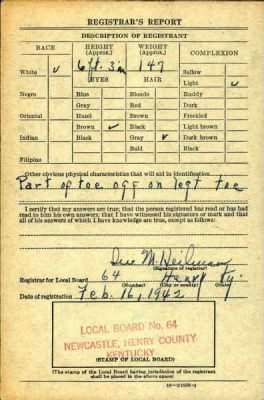 REGISTRAR'S REPORT
DESCRIPTION OF REGISTRANT
RACE HEIGHT (Approx.) WEIGHT (Approx.) COMPLEXION
White ✓ 6 ft. 3 in 147 Sallow
EYES HAIR Light ✓
Negro Blue Blonde Ruddy
Gray Red Dark
Oriental Hazel Brown Freckled
Brown ✓ Black Light brown
Indian Black Gray ✓ Dark brown
Bald Black
Filipino
Other obvious physical characteristics that will aid in identification
Part of toe off on left toe
I certify that my answers are true; that the person registered has read or has had
read to him his own answers; that I have witnessed his signature or mark and that
all of his answers of which I have knowledge are true, except as follows:
M.
(Signature of registrar)
Registrar for Local Board 64 Henry Ky.
(Number) (City or county) (State)
Date of registration Feb. 16, 1942
LOCAL BOARD No. 64
NEWCASTLE, HENRY COUNTY
KENTUCKY
(STAMP OF LOCAL BOARD)
(The stamp of the Local Board having jurisdiction of the registrant
shall be placed in the above space)